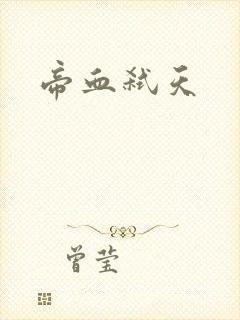 帝血弑天
曾莹